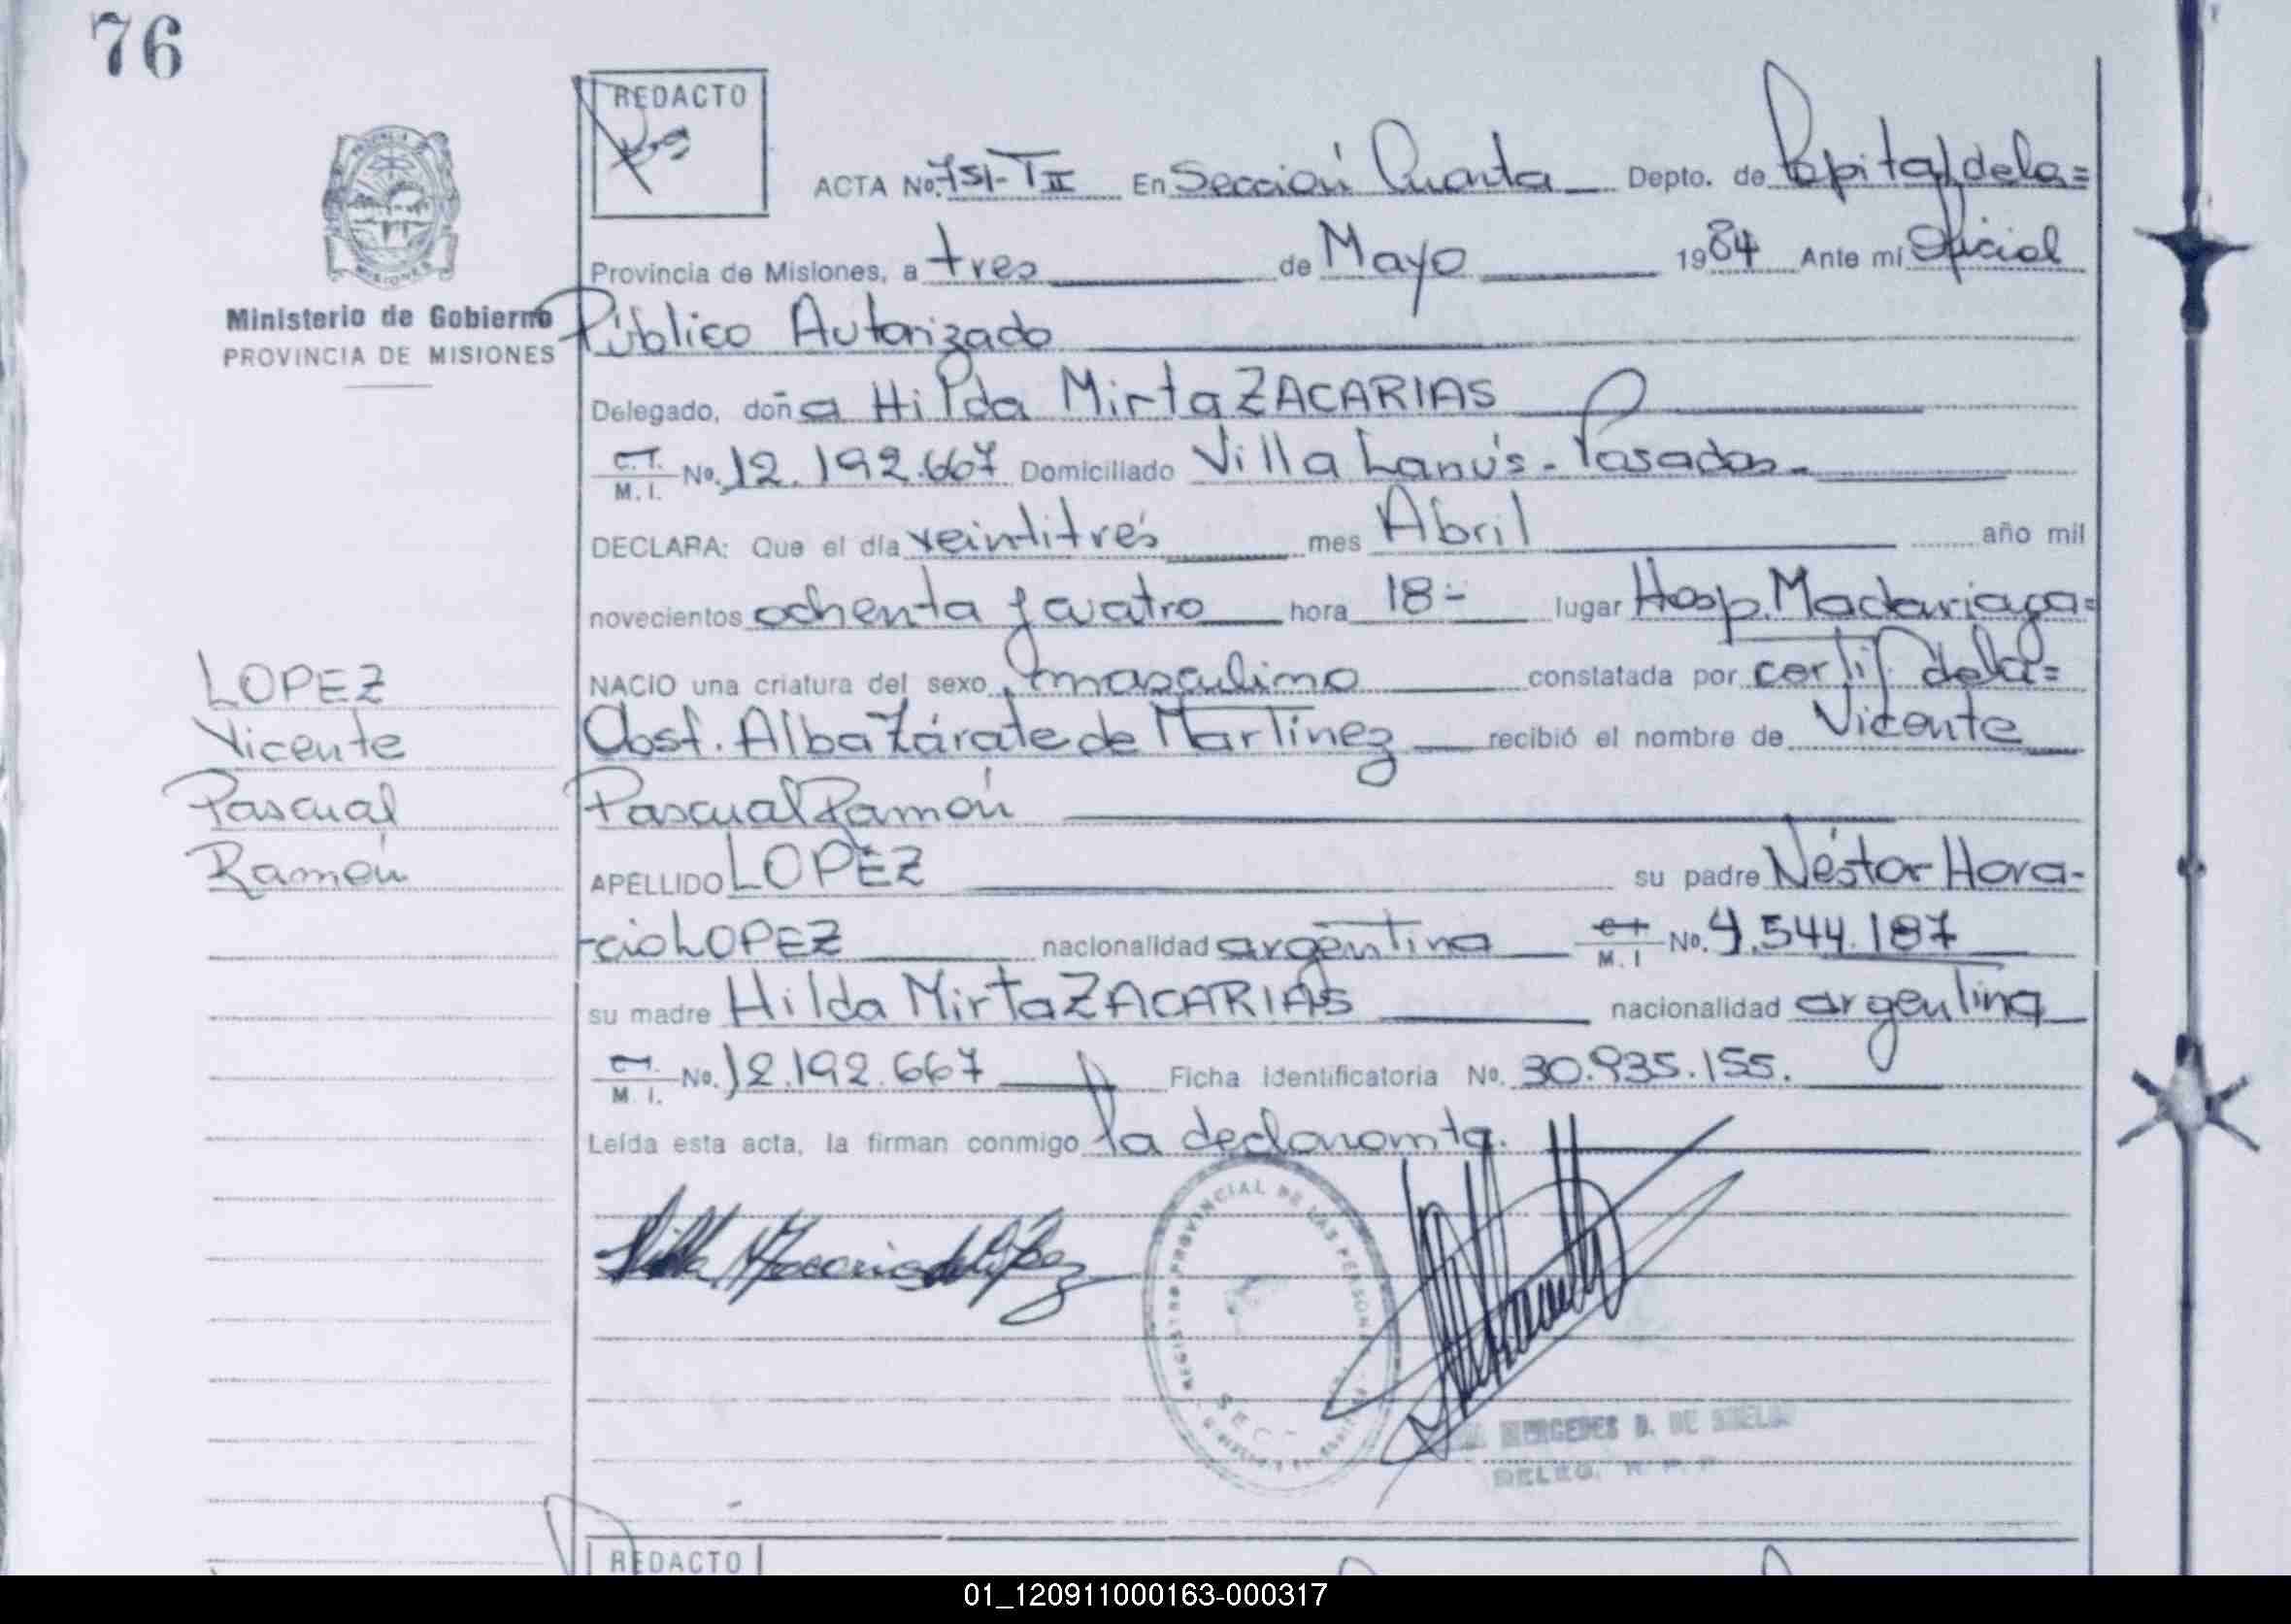 76
REDACTO
ACTA No. 751-T II En Sección Cuarta Depto. de Capital, de la=
Provincia de Misiones, a tres de Mayo 1984 Ante mí Oficial
Ministerio de Gobierno
PROVINCIA DE MISIONES
Público Autorizado
Delegado, doña Hilda Mirta ZACARIAS
C.I. M.I. No. 12.192.667 Domiciliado Villa Lanús - Posadas.-
DECLARA: Que el día veintitrés mes Abril año mil
novecientos ochenta y cuatro hora 18- lugar Hosp. Madariaga=
NACIO una criatura del sexo masculino constatada por certif de la=
Obst. Alba Zárate de Martínez recibió el nombre de Vicente
Pascual Ramón
APELLIDO LOPEZ su padre Néstor Hora-
-cio LOPEZ nacionalidad argentina M.I No. 4.544.187
su madre Hilda Mirta ZACARIAS nacionalidad argentina
M.I. No. 12.192.667 Ficha Identificatoria No. 30.935.155.
Leída esta acta, la firman conmigo la declaranta.
LOPEZ
Vicente
Pascual
Ramón
REGISTRO PROVINCIAL DE LAS PERSONAS
MERCEDES D. DE
DELEG.
REDACTO
01_120911000163-000317